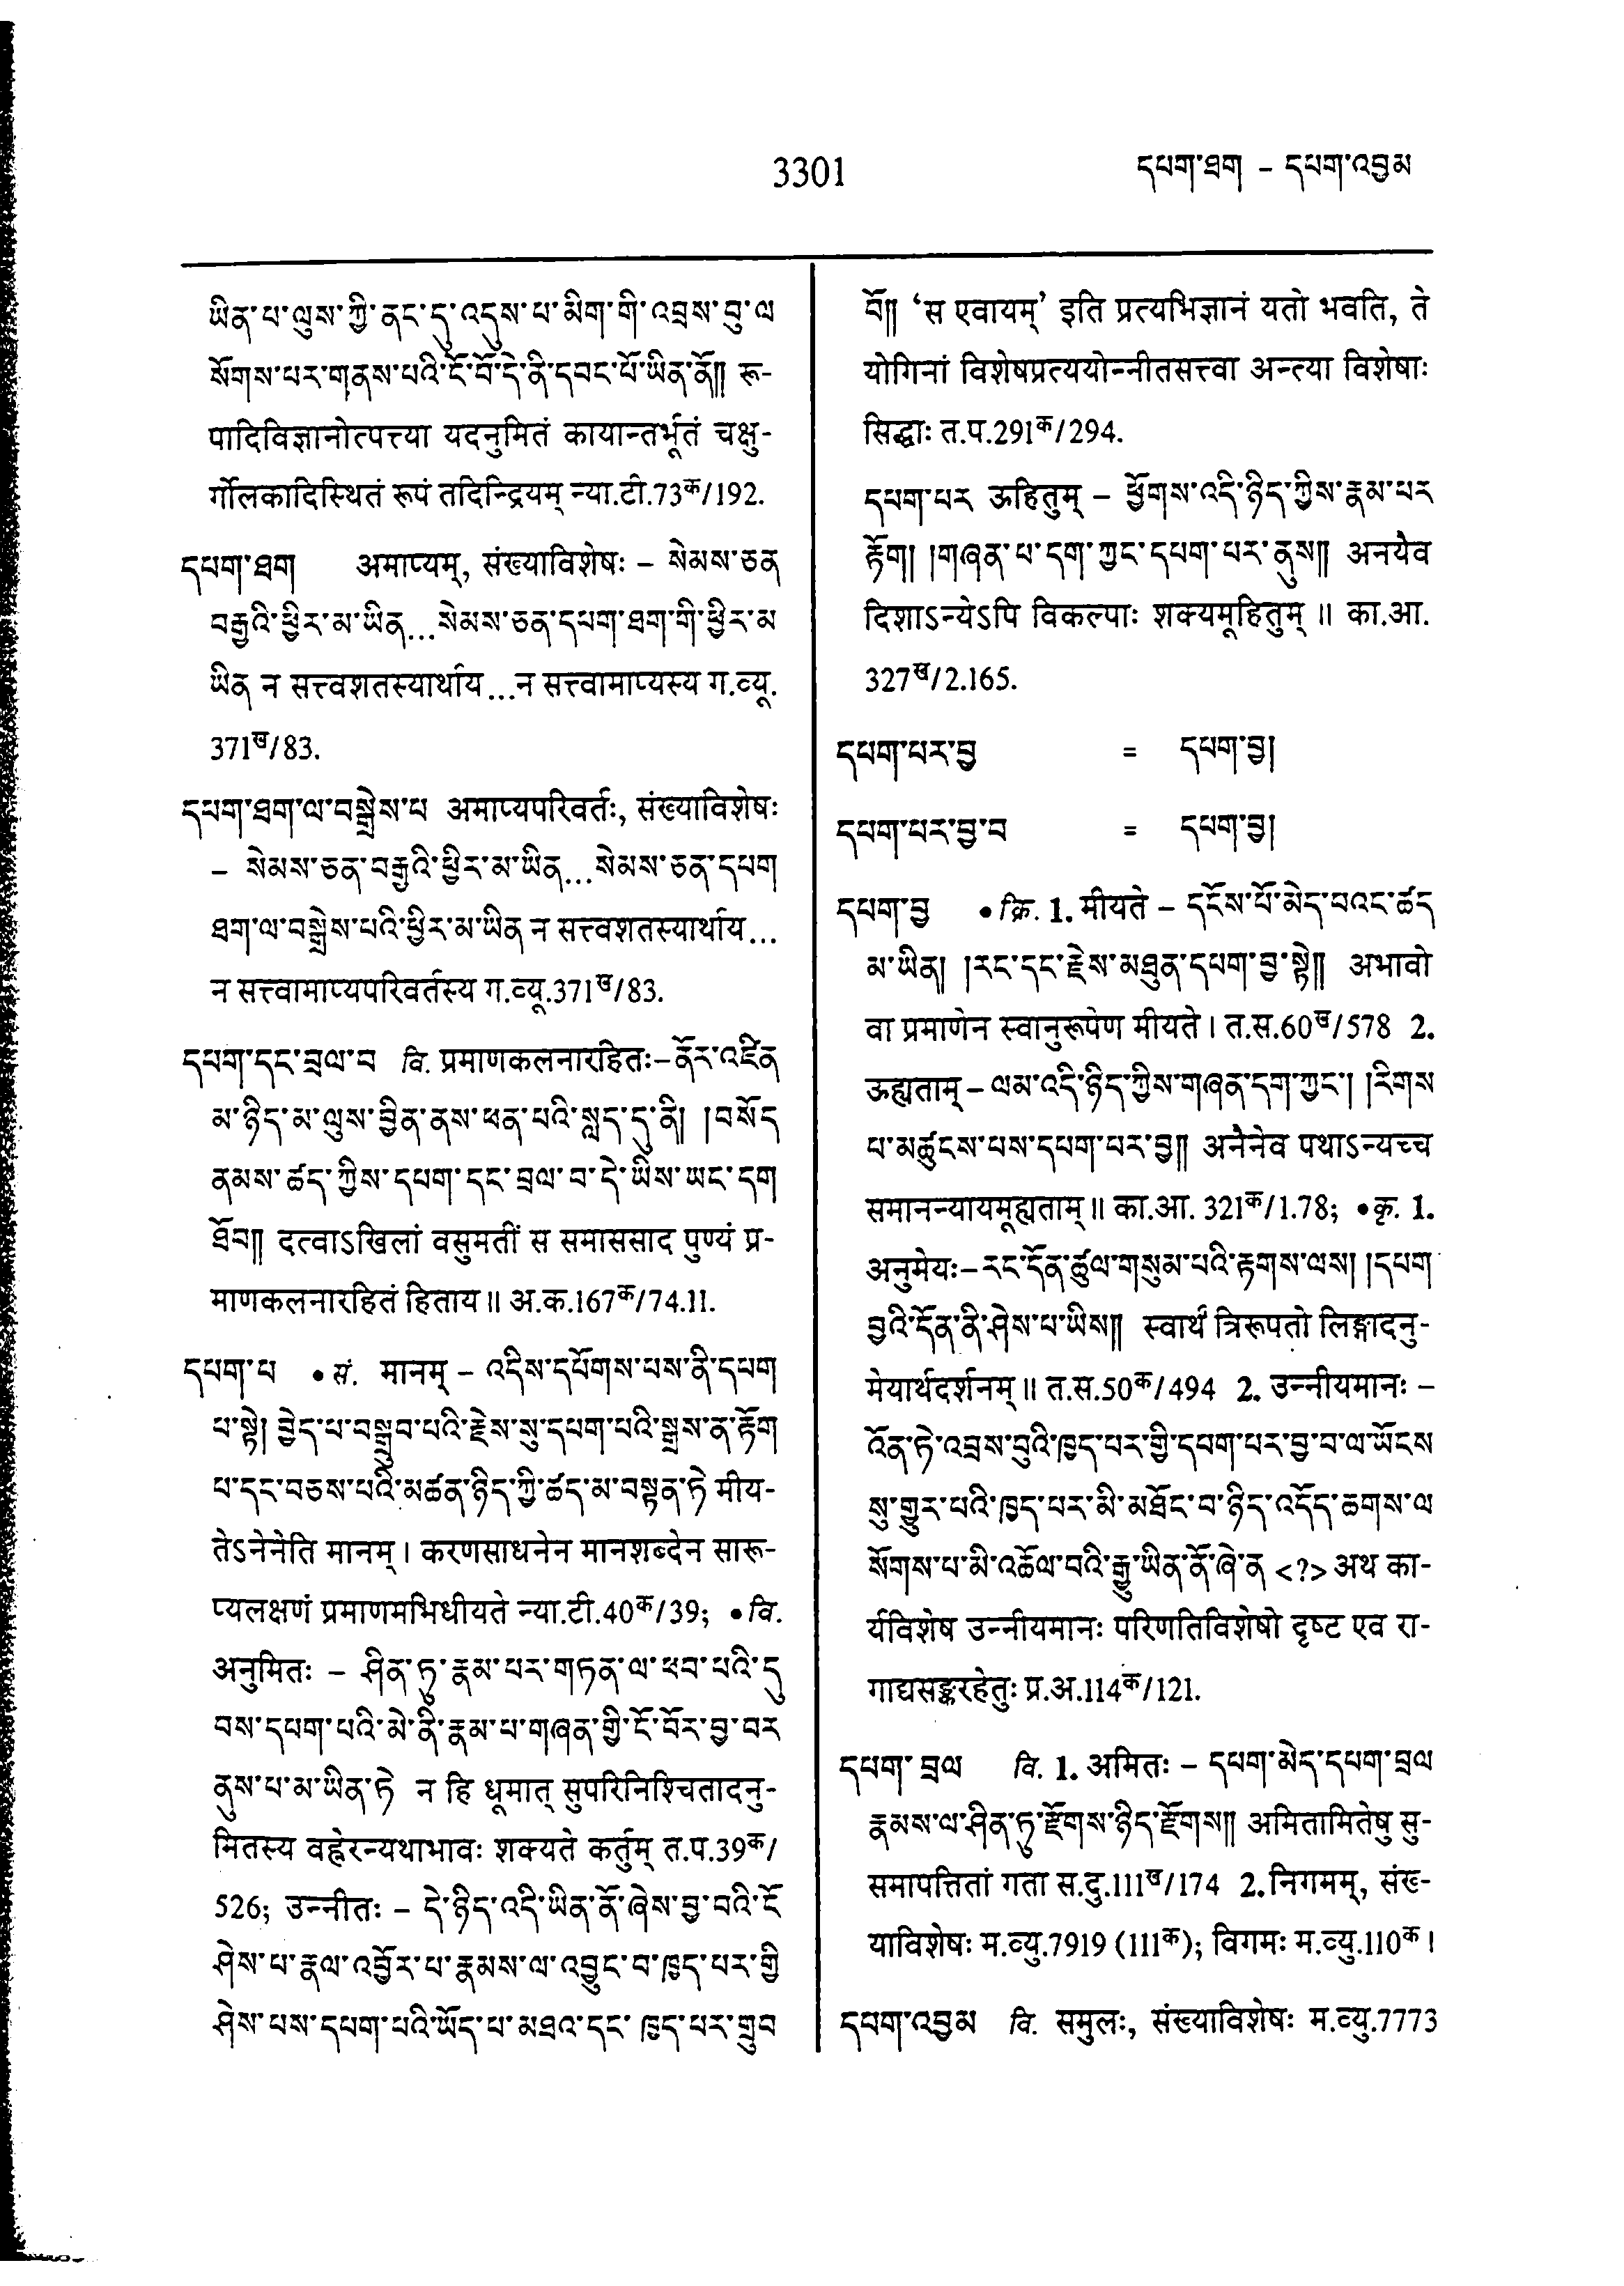 3301
དཔག་ཐག – དཔག་འབྱམ
ཡིན་པ་ལུས་ཀྱི་ནང་དུ་འདུས་པ་མིག་གི་འབྲས་བུ་ལ
སོགས་པར་གནས་པའི་ངོ་བོ་དེ་ནི་དབང་པོ་ཡིན་ནོ༎ रू-
पादिविज्ञानोत्पत्त्या यदनुमितं कायान्तर्भूतं चक्षु-
र्गोलकादिस्थितं रूपं तदिन्द्रियम् न्या.टी.73क/192.
དཔག་ཐག अमाप्यम्, संख्याविशेषः – སེམས་ཅན
བརྒྱའི་ཕྱིར་མ་ཡིན…སེམས་ཅན་དཔག་ཐག་གི་ཕྱིར་མ
ཡིན न सत्त्वशतस्यार्थाय…न सत्त्वामाप्यस्य ग.व्यू.
371ख/83.
དཔག་ཐག་ལ་བསྒྲེས་པ अमाप्यपरिवर्तः, संख्याविशेषः
– སེམས་ཅན་བརྒྱའི་ཕྱིར་མ་ཡིན…སེམས་ཅན་དཔག
ཐག་ལ་བསྒྲེས་པའི་ཕྱིར་མ་ཡིན न सत्त्वशतस्यार्थाय…
न सत्त्वामाप्यपरिवर्तस्य ग.व्यू.371ख/83.
དཔག་དང་བྲལ་བ वि. प्रमाणकलनारहितः–ནོར་འཛིན
མ་ཉིད་མ་ལུས་བྱིན་ནས་ཕན་པའི་སླད་དུ་ནི། །བསོད
ནམས་ཚད་ཀྱིས་དཔག་དང་བྲལ་བ་དེ་ཡིས་ཡང་དག
ཐོབ༎ दत्वाऽखिलां वसुमतीं स समाससाद पुण्यं प्र-
माणकलनारहितं हिताय ॥ अ.क.167क/74.11.
དཔག་པ • सं. मानम् – འདིས་དཔོགས་པས་ནི་དཔག
པ་སྟེ། བྱེད་པ་བསྒྲུབ་པའི་རྗེས་སུ་དཔག་པའི་སྒྲས་ན་རྟོག
པ་དང་བཅས་པའི་མཚན་ཉིད་ཀྱི་ཚད་མ་བསྟན་ཏེ मीय-
तेऽनेनेति मानम् । करणसाधनेन मानशब्देन सारू-
प्यलक्षणं प्रमाणमभिधीयते न्या.टी.40क/39; • वि.
अनुमितः – ཤིན་ཏུ་རྣམ་པར་གཏན་ལ་ཕབ་པའི་དུ
བས་དཔག་པའི་མེ་ནི་རྣམ་པ་གཞན་གྱི་ངོ་བོར་བྱ་བར
ནུས་པ་མ་ཡིན་ཏེ न हि धूमात् सुपरिनिश्चितादनु-
मितस्य वह्नेरन्यथाभावः शक्यते कर्तुम् त.प.39क/
526; उन्नीतः – དེ་ཉིད་འདི་ཡིན་ནོ་ཞེས་བྱ་བའི་ངོ
ཤེས་པ་རྣལ་འབྱོར་པ་རྣམས་ལ་འབྱུང་བ་ཁྱད་པར་གྱི
ཤེས་པས་དཔག་པའི་ཡོད་པ་མཐའ་དང་ཁྱད་པར་གྲུབ
བོ༎ ‘स एवायम्’ इति प्रत्यभिज्ञानं यतो भवति, ते
योगिनां विशेषप्रत्ययोन्नीतसत्त्वा अन्त्या विशेषाः
सिद्धाः त.प.291क/294.
དཔག་པར ऊहितुम् – ཕྱོགས་འདི་ཉིད་ཀྱིས་རྣམ་པར
རྟོག། །གཞན་པ་དག་ཀྱང་དཔག་པར་ནུས༎ अनयैव
दिशाऽन्येऽपि विकल्पाः शक्यमूहितुम् ॥ का.आ.
327ख/2.165.
དཔག་པར་བྱ = དཔག་བྱ།
དཔག་པར་བྱ་བ = དཔག་བྱ།
དཔག་བྱ • क्रि. 1. मीयते – དངོས་པོ་མེད་པའང་ཚད
མ་ཡིན། །རང་དང་རྗེས་མཐུན་དཔག་བྱ་སྟེ༎ अभावो
वा प्रमाणेन स्वानुरूपेण मीयते । त.स.60ख/578 2.
ऊह्यताम् – ལམ་འདི་ཉིད་ཀྱིས་གཞན་དག་ཀྱང་། །རིགས
པ་མཚུངས་པས་དཔག་པར་བྱ༎ अनेनैव पथाऽन्यच्च
समानन्यायमूह्यताम् ॥ का.आ. 321क/1.78; • कृ. 1.
अनुमेयः–རང་དོན་ཚུལ་གསུམ་པའི་རྟགས་ལས། །དཔག
བྱའི་དོན་ནི་ཤེས་པ་ཡིས༎ स्वार्थं त्रिरूपतो लिङ्गादनु-
मेयार्थदर्शनम् ॥ त.स.50क/494 2. उन्नीयमानः –
འོན་ཏེ་འབྲས་བུའི་ཁྱད་པར་གྱི་དཔག་པར་བྱ་བ་ལ་ཡོངས
སུ་གྱུར་པའི་ཁྱད་པར་མི་མཐོང་བ་ཉིད་འདོད་ཆགས་ལ
སོགས་པ་མི་འཆོལ་བའི་རྒྱུ་ཡིན་ནོ་ཞེ་ན <?> अथ का-
र्यविशेष उन्नीयमानः परिणतिविशेषो दृष्ट एव रा-
गाद्यसङ्करहेतुः प्र.अ.114क/121.
དཔག་བྲལ वि. 1. अमितः – དཔག་མེད་དཔག་བྲལ
རྣམས་ལ་ཤིན་ཏུ་རྫོགས་ཉིད་རྫོགས༎ अमितामितेषु सु-
समापत्तितां गता स.दु.111ख/174 2. निगमम्, संख-
याविशेषः म.व्यु.7919 (111क); विगमः म.व्यु.110क ।
དཔག་འབྱམ वि. समुलः, संख्याविशेषः म.व्यु.7773